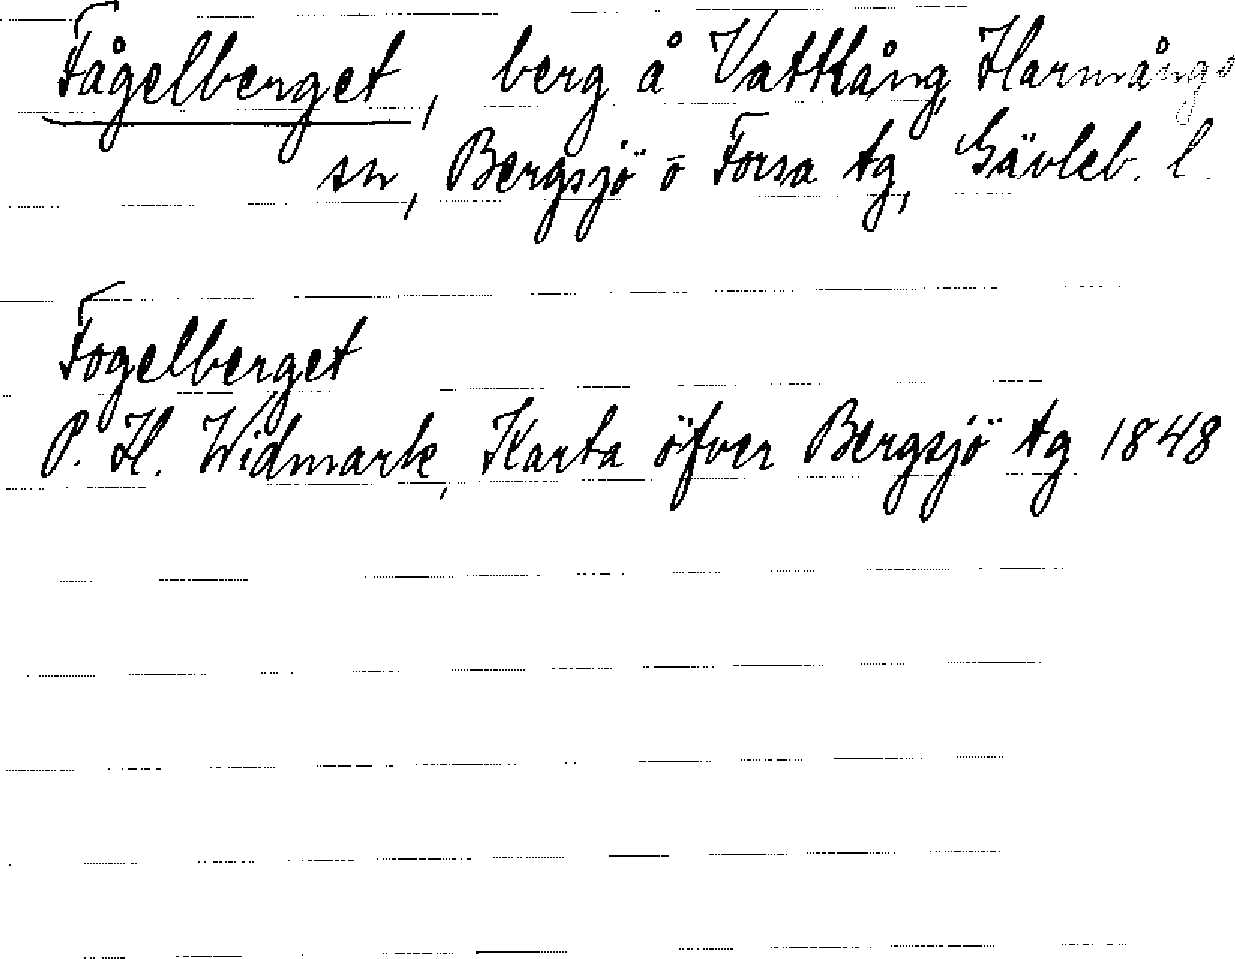 Fågelberget, berg å Vattlång, Harmångs
sn, Bergsjö o Forsa tg, Gävleb. l.
Fogelberget
P. H. Widmark, Karta öfver Bergsjö tg 1848